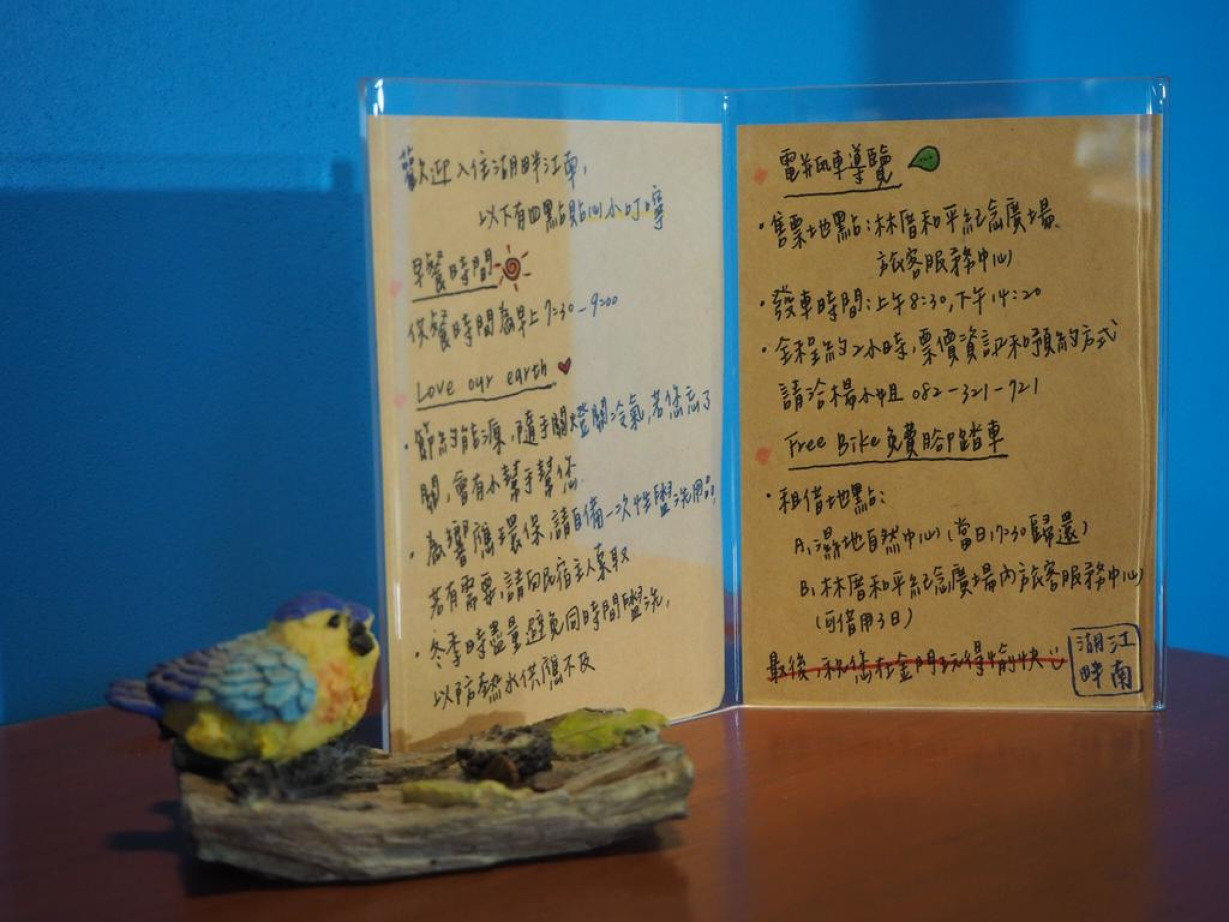 歡迎入住湖畔江南,
以下有四點貼心小叮嚀
早餐時間
供餐時間為早上 7:30-9:00
Love our earth
·節約能源,隨手關燈關冷氣,若您忘了
關,會有小幫手幫您.
·為響應環保,請自備一次性盥洗用品,
若有需要,請向民宿主人索取
·冬季時盡量避免同時間盥洗,
以防熱水供應不及
電瓶車導覽
·售票地點:林厝和平紀念廣場
旅客服務中心
·發車時間:上午8:30,下午14:20
·全程約2小時,票價資訊和預約方式
請洽楊小姐 082-321-721
Free Bike 免費腳踏車
·租借地點:
A.濕地自然中心(當日17:30歸還)
B.林厝和平紀念廣場內旅客服務中心
(可借用3日)
最後,祝您在金門玩得愉快
湖江
畔南